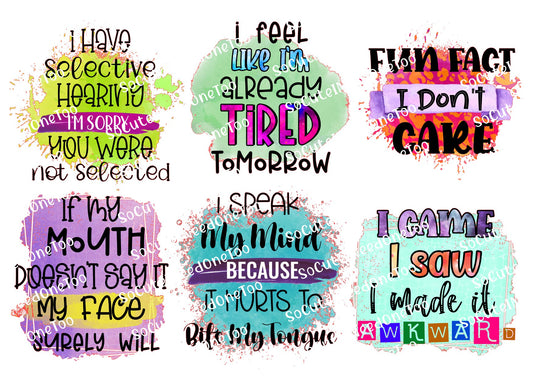 I HAVE
SELECTIVE
HEARING
I'M SORRY
YOU WERE
not selected
I FEEL
LIKE I'M
ALREADY
TIRED
TOMORROW
FUN FACT
I DON'T
CARE
IF MY
MOUTH
DOESN'T SAY IT
MY FACE
SURELY WILL
I SPEAK
My Mind
BECAUSE
IT HURTS TO
Bite My Tongue
I CAME
I SAW
I made it
AWKWARD